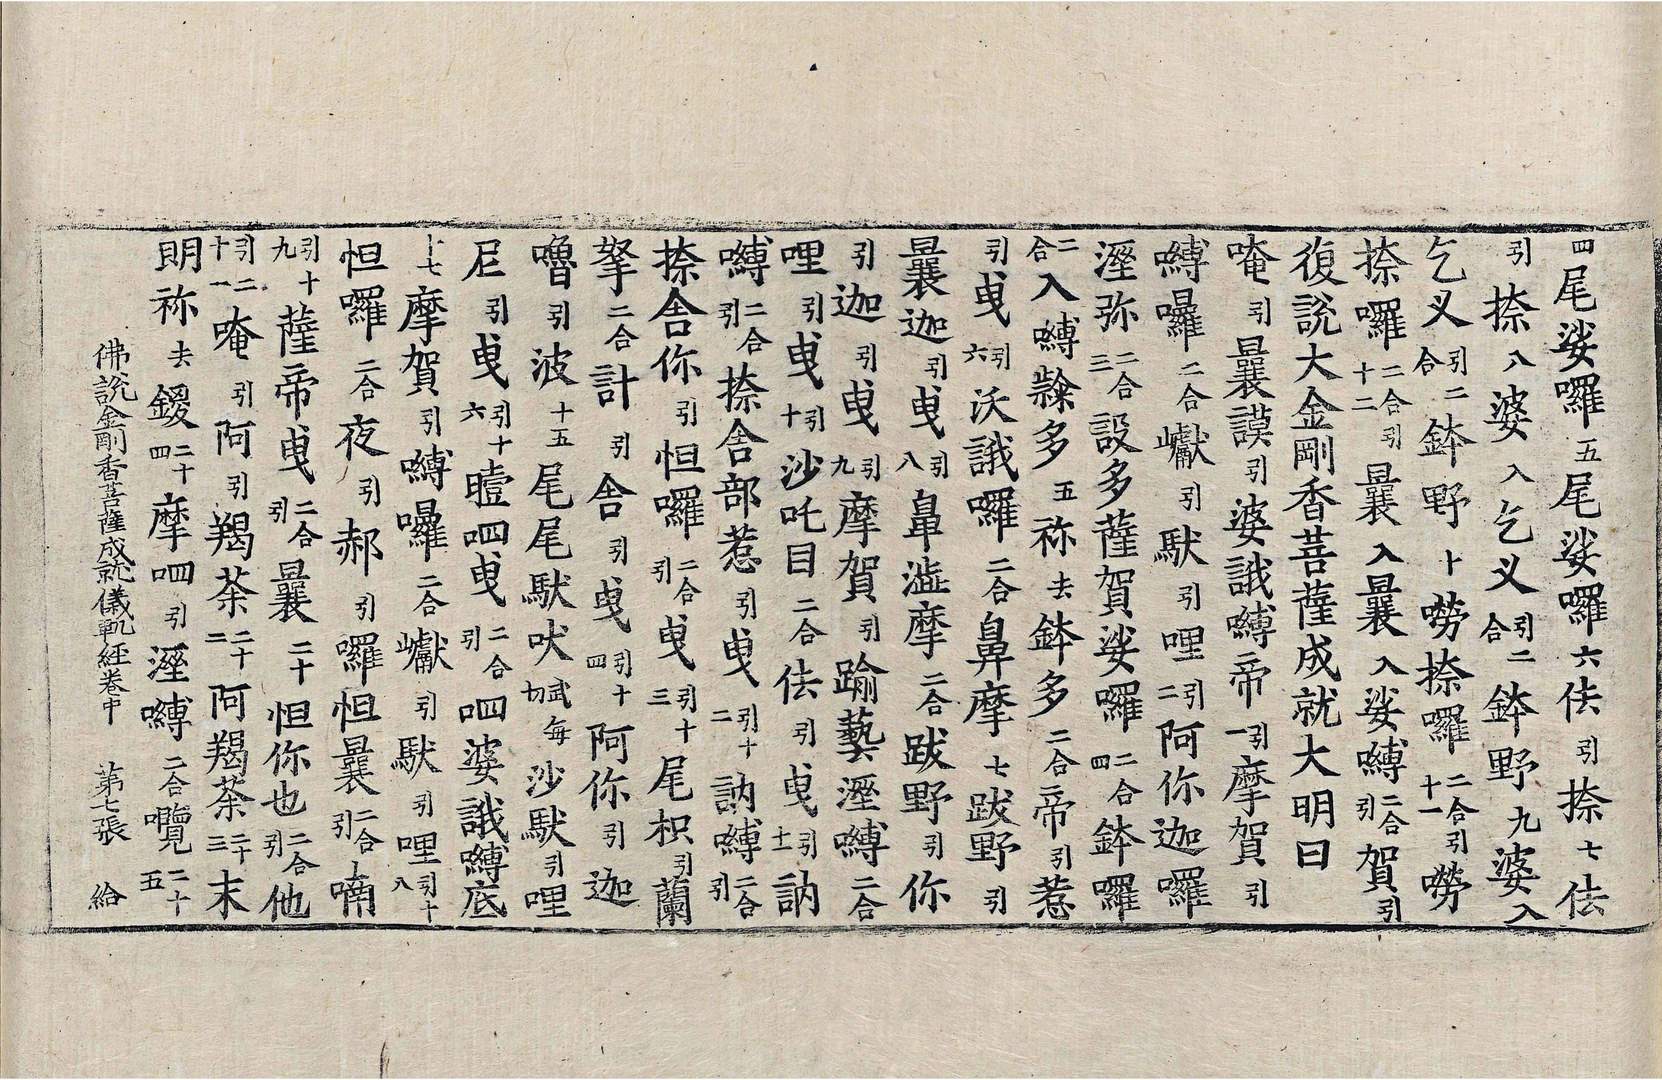 四尾娑囉五尾娑囉六佉引捺七佉
引捺八婆入乞义二合引鉢野九婆入
乞义二合引鉢野十嘮捺囉二合引十一嘮
捺囉二合引十二曩入曩入娑嚩二合引賀引
復說大金剛香菩薩成就大明曰
唵引曩謨引婆誐嚩帝引一摩賀引
嚩囉二合巘引馱引哩引二阿你迦囉
溼弥二合三設多薩賀娑囉二合四鉢囉
二合入嚩隸多五祢去鉢多二合帝引惹
引曵引六沃誐囉二合鼻摩七跋野引
曩迦引曵引八鼻溢摩二合跋野引你
引迦引曵引九摩賀引踰藝溼嚩二合
哩引曵引十沙吒目二合佉引曵引十一訥
嚩二合引捺舍部惹引曵引十二訥嚩二合引
捺舍你引怛囉二合引曵引十三尾枳引蘭
拏二合計引舍引曵引十四阿你引迦
嚕引波十五尾尾馱吠武每切沙馱引哩
尼引曵引十六曀呬曵二合引呬婆誐嚩底
十七摩賀引嚩囉二合巘引馱引哩引十八
怛囉二合夜引郝引囉怛曩二合引喃
引十九薩帝曵二合引曩二十怛你也二合引他
引二十一唵引阿引羯荼二十二阿羯荼二十三末
明祢去鑁二十四摩呬引溼嚩二合囕二十五
佛說金剛香菩薩成就儀軌經卷中 第七張 給